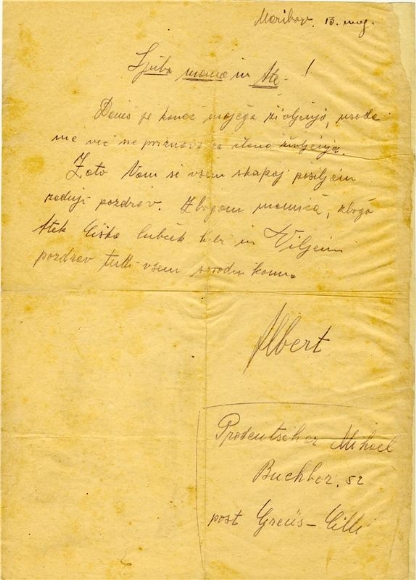 Maribor, 13. maj.
Ljuba mama in Ate!
Danes je konec mojega življenja, usoda
me več ne priznava za člana življenja.
Zato Vam se vsem skupaj pošiljam
zadnji pozdrav. Zbogom mamica, zbogom
Atek Ciška in Viljem
pozdrav tudi vsem sorodnikom.
Albert
Mihael
Buchber. 52
post Greis-Cilli